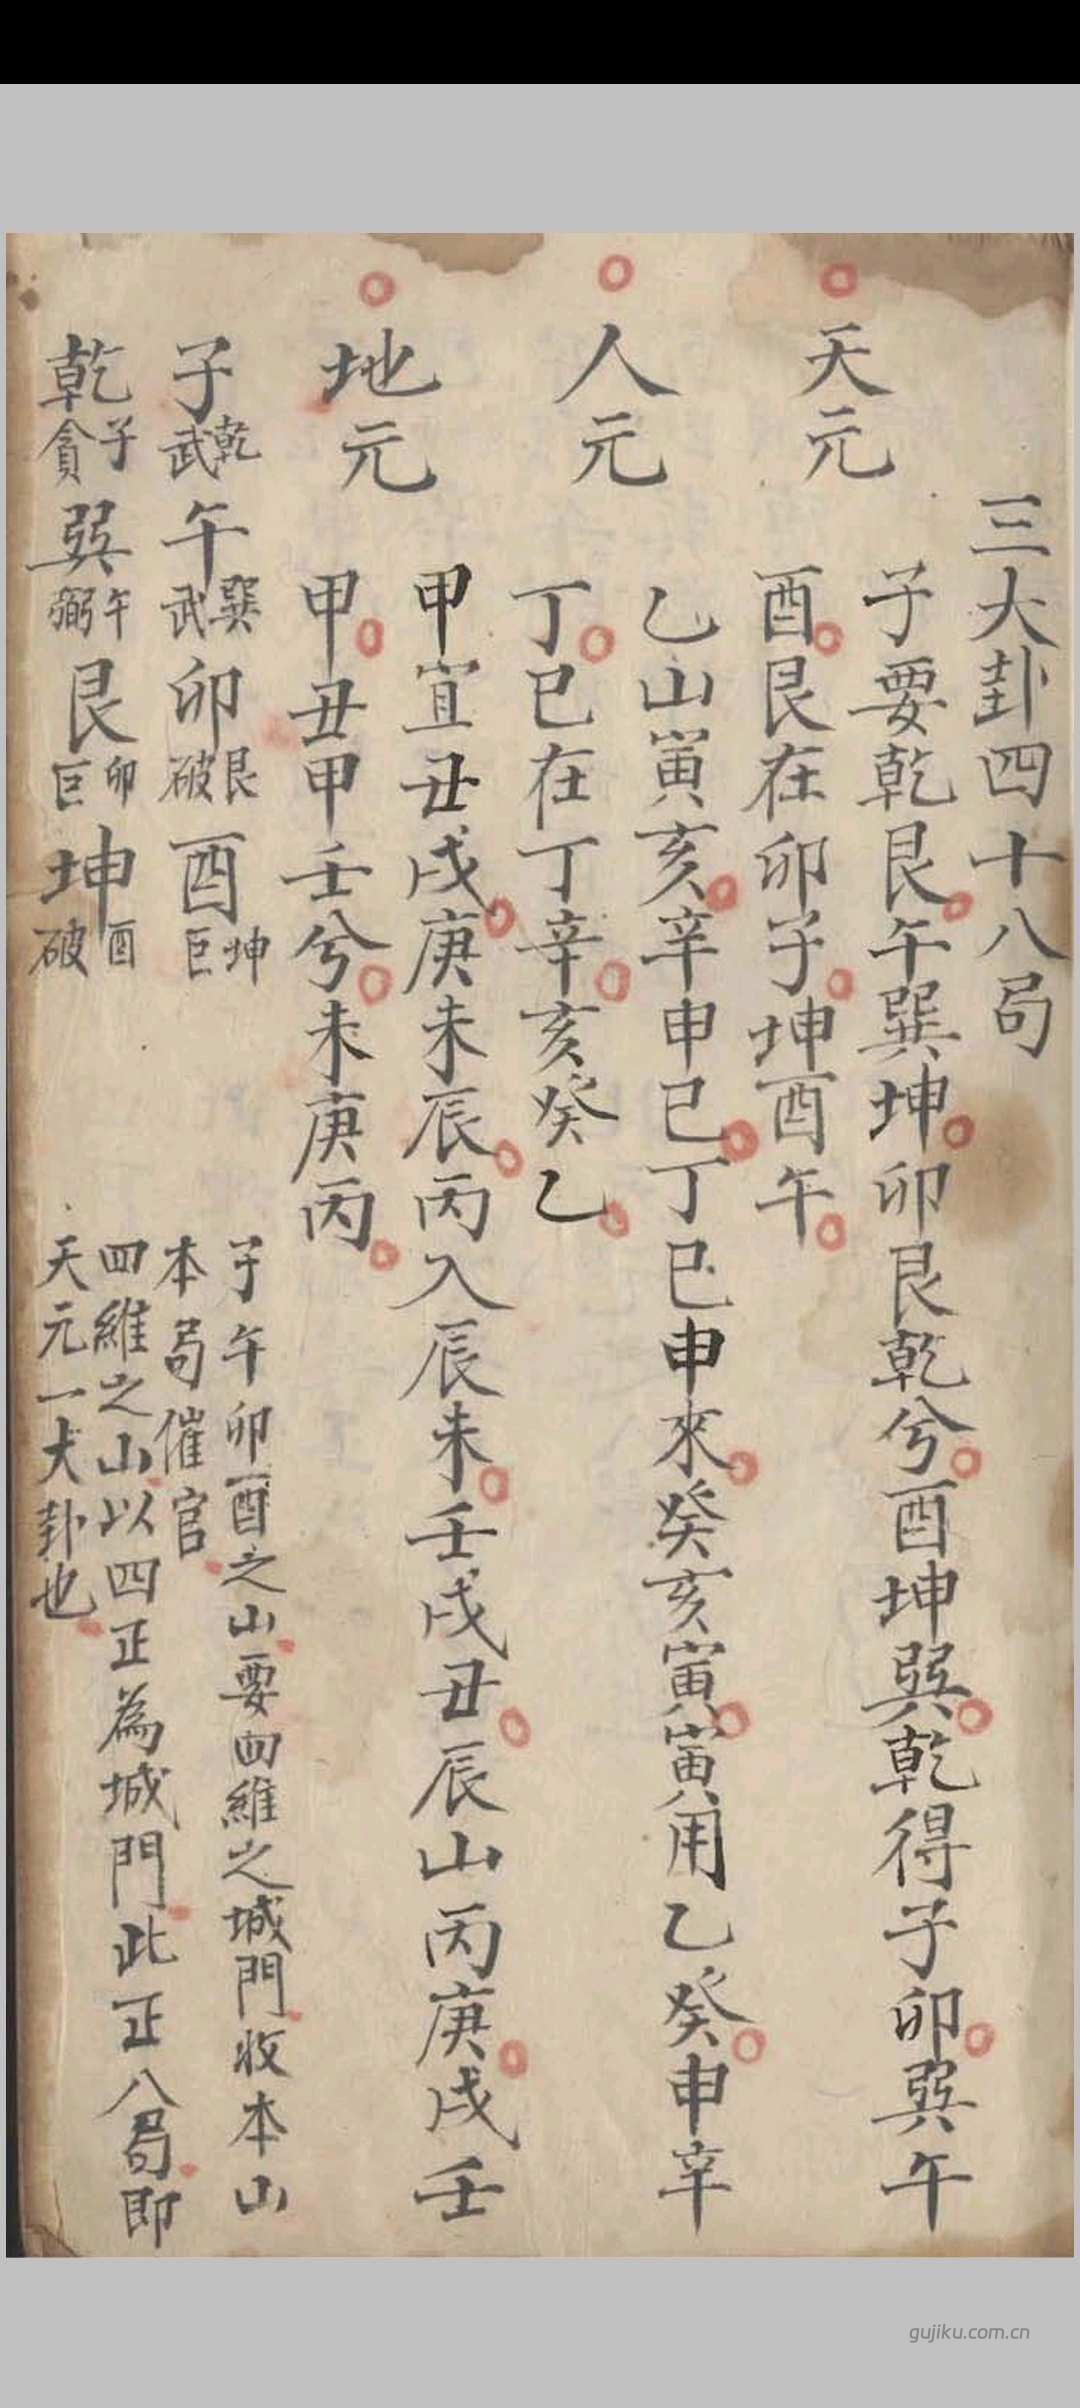 三大卦四十八局
天元
子要乾艮午巽坤卯艮乾兮酉坤巽乾得子卯巽午
酉艮在卯子坤酉午
人元
乙山寅亥辛申巳丁巳申來癸亥寅寅用乙癸申辛
丁巳在丁辛亥癸乙
地元
甲宜丑戌庚未辰丙入辰未壬戌丑辰山丙庚戌壬
甲丑甲壬兮未庚丙
子乾武午巽武卯艮破酉坤巨
乾子貪巽午弼艮卯巨坤酉破
子午卯酉之山要四維之城門收本山
本局催官
四維之山以四正為城門此正八局即
天元一大卦也
gujiku.com.cn